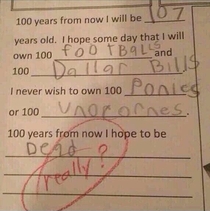 100 years from now I will be 107
years old. I hope some day that I will
own 100 footBalls and
100 Dollar Bills
I never wish to own 100 Ponies
or 100 Unocornes.
100 years from now I hope to be
Dead
really?